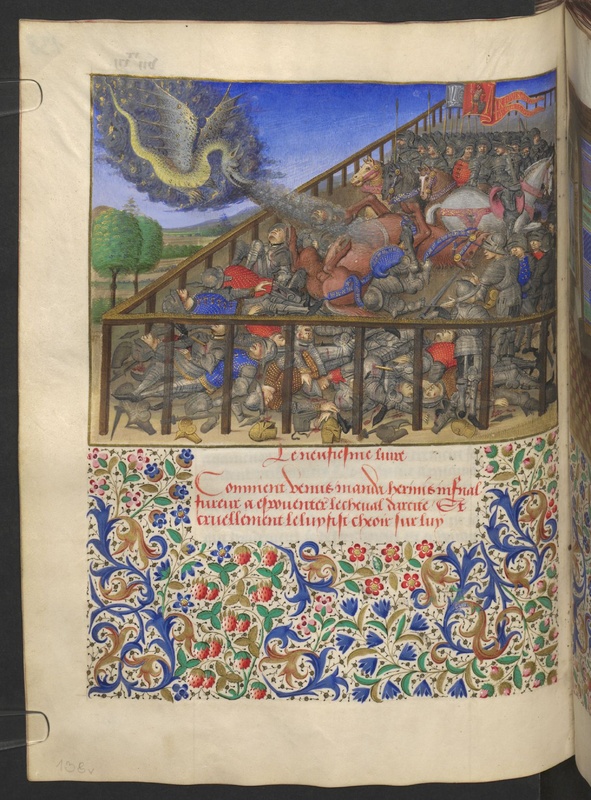 Le neufiesme livre
Comment venus manda herinis infernal
fureur a espouenter le cheval darcite Et
cruellement le luy fist cheoir sur luy